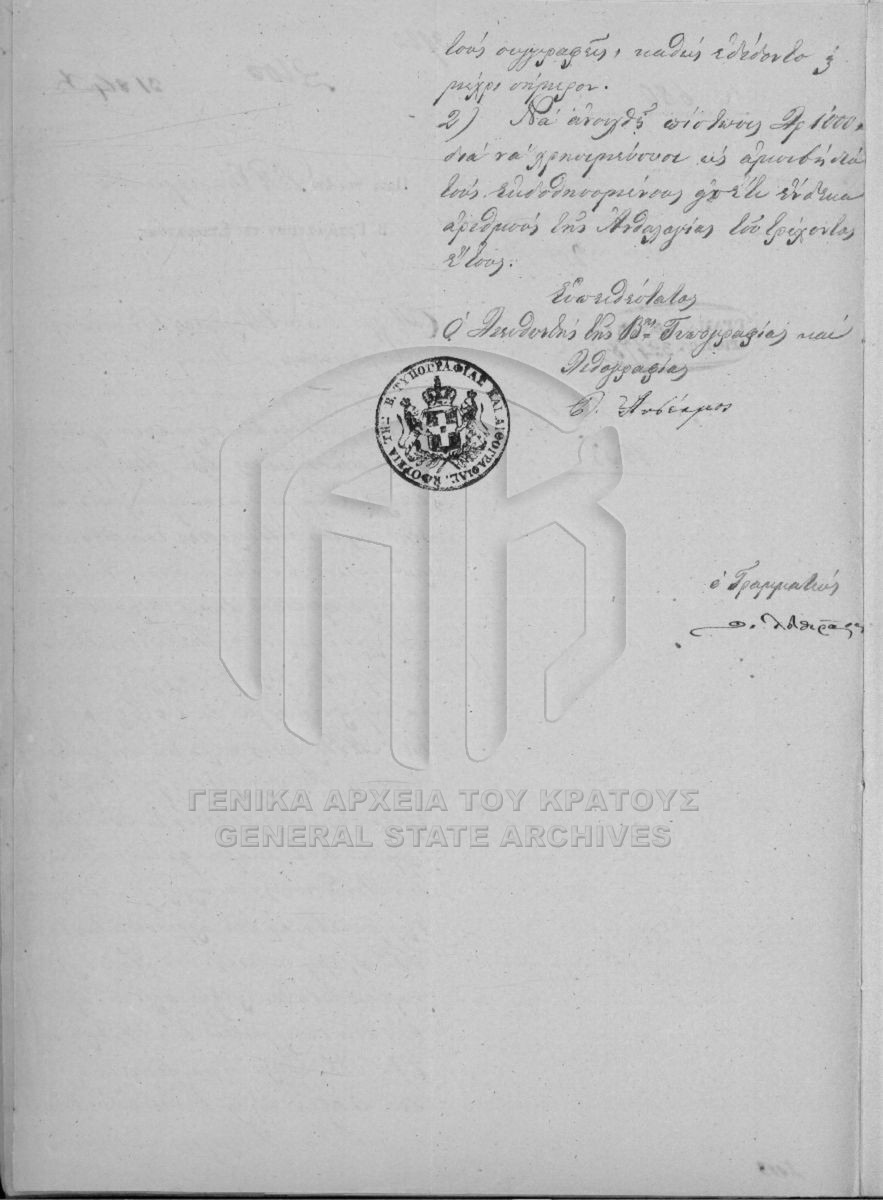 τοὺς συγγραφεῖς, καθὼς ἐδίδοντο
μέχρι σήμερον.
2) Νὰ ἀνοιχθῇ πίστωσις Δρ 1000.
διὰ νὰ χρησιμεύσωσι ὡς ἀμοιβὴ διὰ
τοὺς ἐκδοθησομένους ἔτι ἕνδεκα
ἀριθμοὺς τῆς Ἀνθολογίας τοῦ τρέχοντος
ἔτους.
Εὐπειθέστατος
Ὁ Διευθυντὴς τῆς Βης Τυπογραφίας καὶ
Λιθογραφίας
ΤΗΣ Β. ΤΥΠΟΓΡΑΦΙΑΣ ΚΑΙ ΛΙΘΟΓΡΑΦΙΑΣ.
ὁ Γραμματεὺς
ΓΕΝΙΚΑ ΑΡΧΕΙΑ ΤΟΥ ΚΡΑΤΟΥΣ
GENERAL STATE ARCHIVES